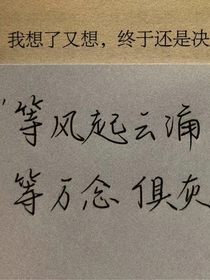 我想了又想，终于还是决
等风起云涌
等万念俱灰